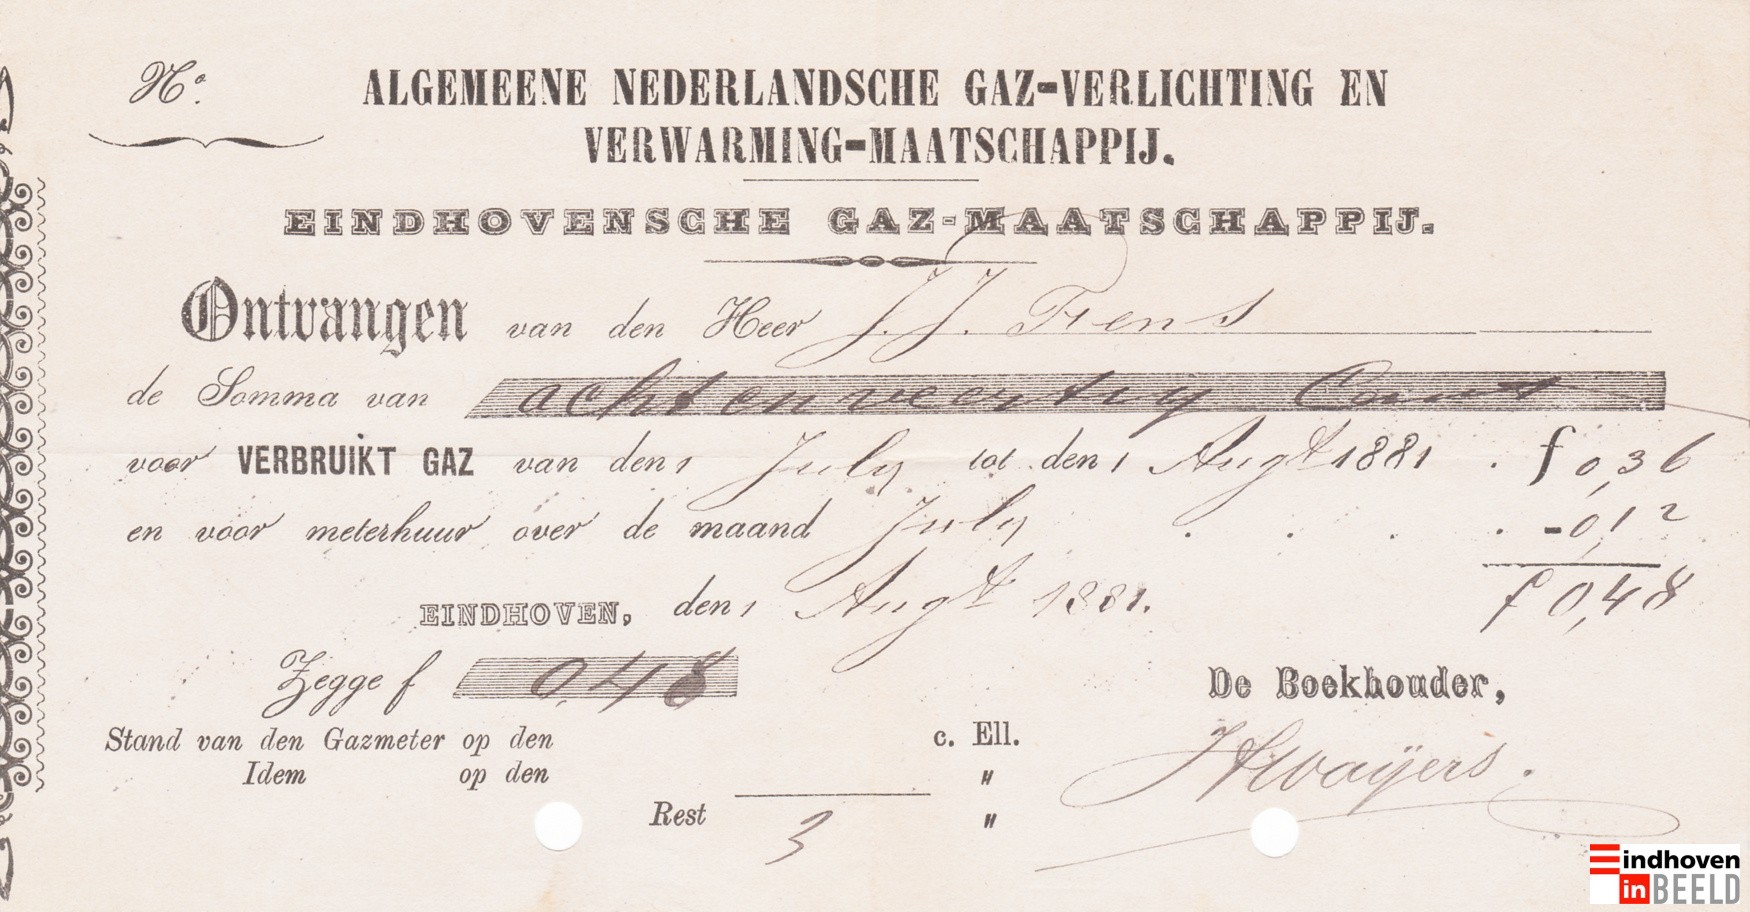 No.
ALGEMEENE NEDERLANDSCHE GAZ-VERLICHTING EN
VERWARMING-MAATSCHAPPIJ.
EINDHOVENSCHE GAZ-MAATSCHAPPIJ.
Ontvangen van den Heer J. J. Fens
de Somma van acht en veertig Cent
voor VERBRUIKT GAZ van den 1 July tot den 1 Augt 1881 . f 0,36
en voor meterhuur over de maand July . . . . - 0,12
f 0,48
EINDHOVEN, den 1 Augt 1881.
Zegge f 0,48
De Boekhouder,
Stand van den Gazmeter op den c. Ell.
Idem op den "
Rest 3 "
Eindhoven
in BEELD